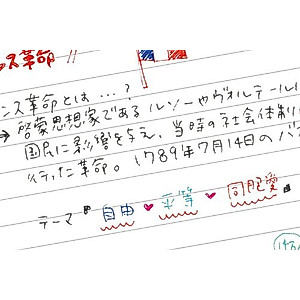 ンス革命
ンス革命とは…?
→啓蒙思想家であるルソーやヴォルテール
国民に影響を与え、当時の社会体制
行った革命。1789年7月14日のバ
テーマ『自由♥平等♥同胞愛』